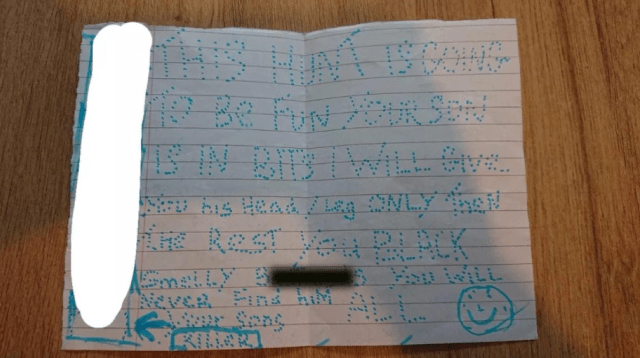 THIS HUNT IS GOING
TO BE FUN YOUR SON
IS IN BITS I WILL GIVE
YOU his Head/Leg ONLY THEN
THE REST YOU BLACK
SMELLY YOU WILL
NEVER FIND HIM ALL
Gang
KILLER